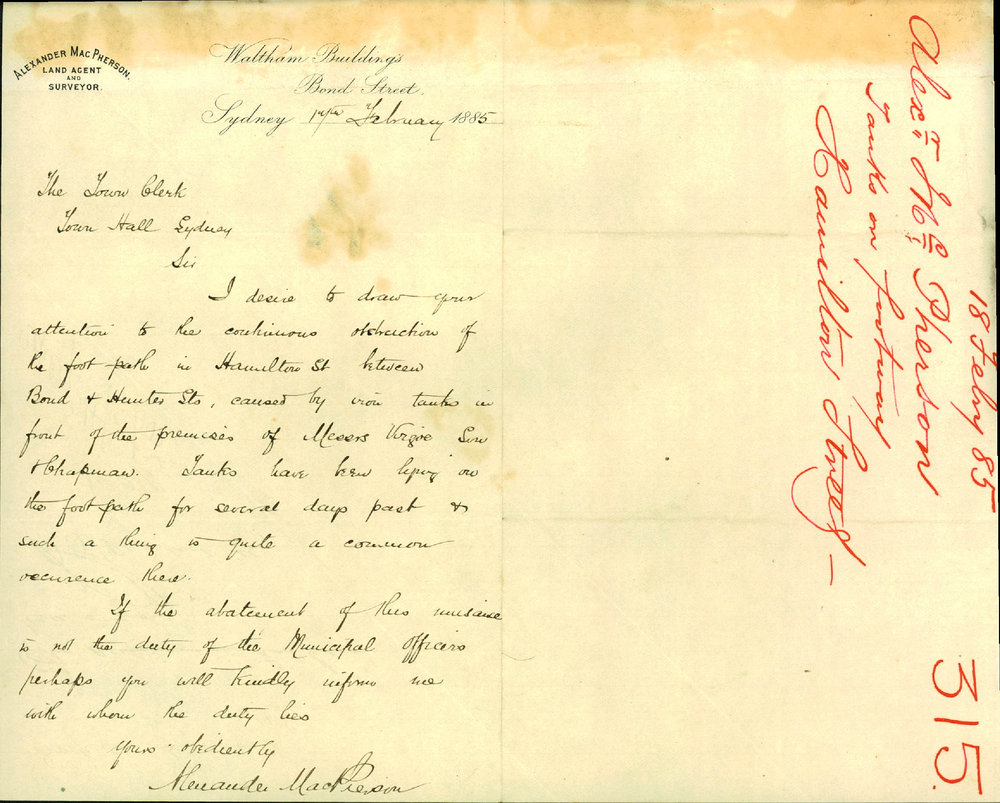 ALEXANDER MAC PHERSON.
LAND AGENT
AND
SURVEYOR.
Waltham Buildings
Bond Street.
Sydney 17th February 1885
The Town Clerk
Town Hall Sydney
Sir
I desire to draw your
attention to the continuous obstruction of
the foot path in Hamilton St between
Bond & Hunter Sts, caused by iron tanks in
front of the premises of Messrs Virgoe Son
& Chapman. Tanks have been lying on
the foot path for several days past &
such a thing is quite a common
occurence there.
If the abatement of this nuisance
is not the duty of the Municipal Officers
perhaps you will kindly inform me
with whom the duty lies
Yours obediently
Alexander MacPherson
18 Feby 85
Alexr McPherson
Tanks on footway
Hamilton Street
315.